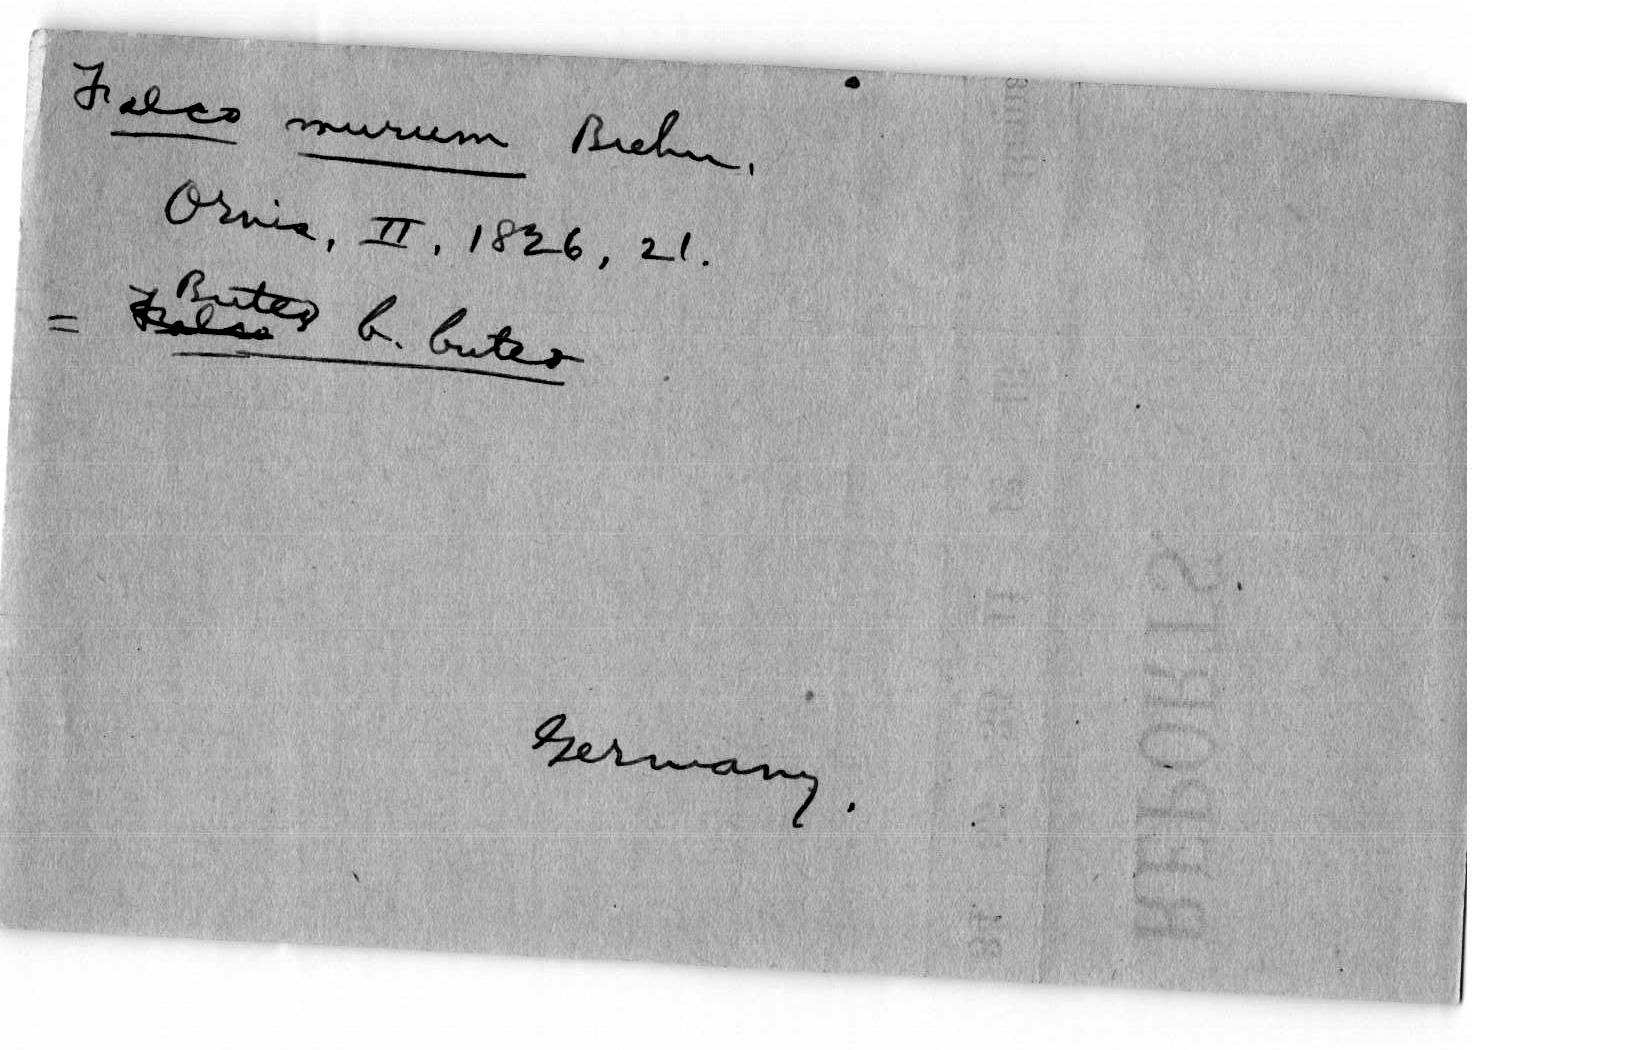 Falco murum Brehm.
Ornis, II, 1826, 21.
= Buteo b. buteo
Germany.
REPORTS